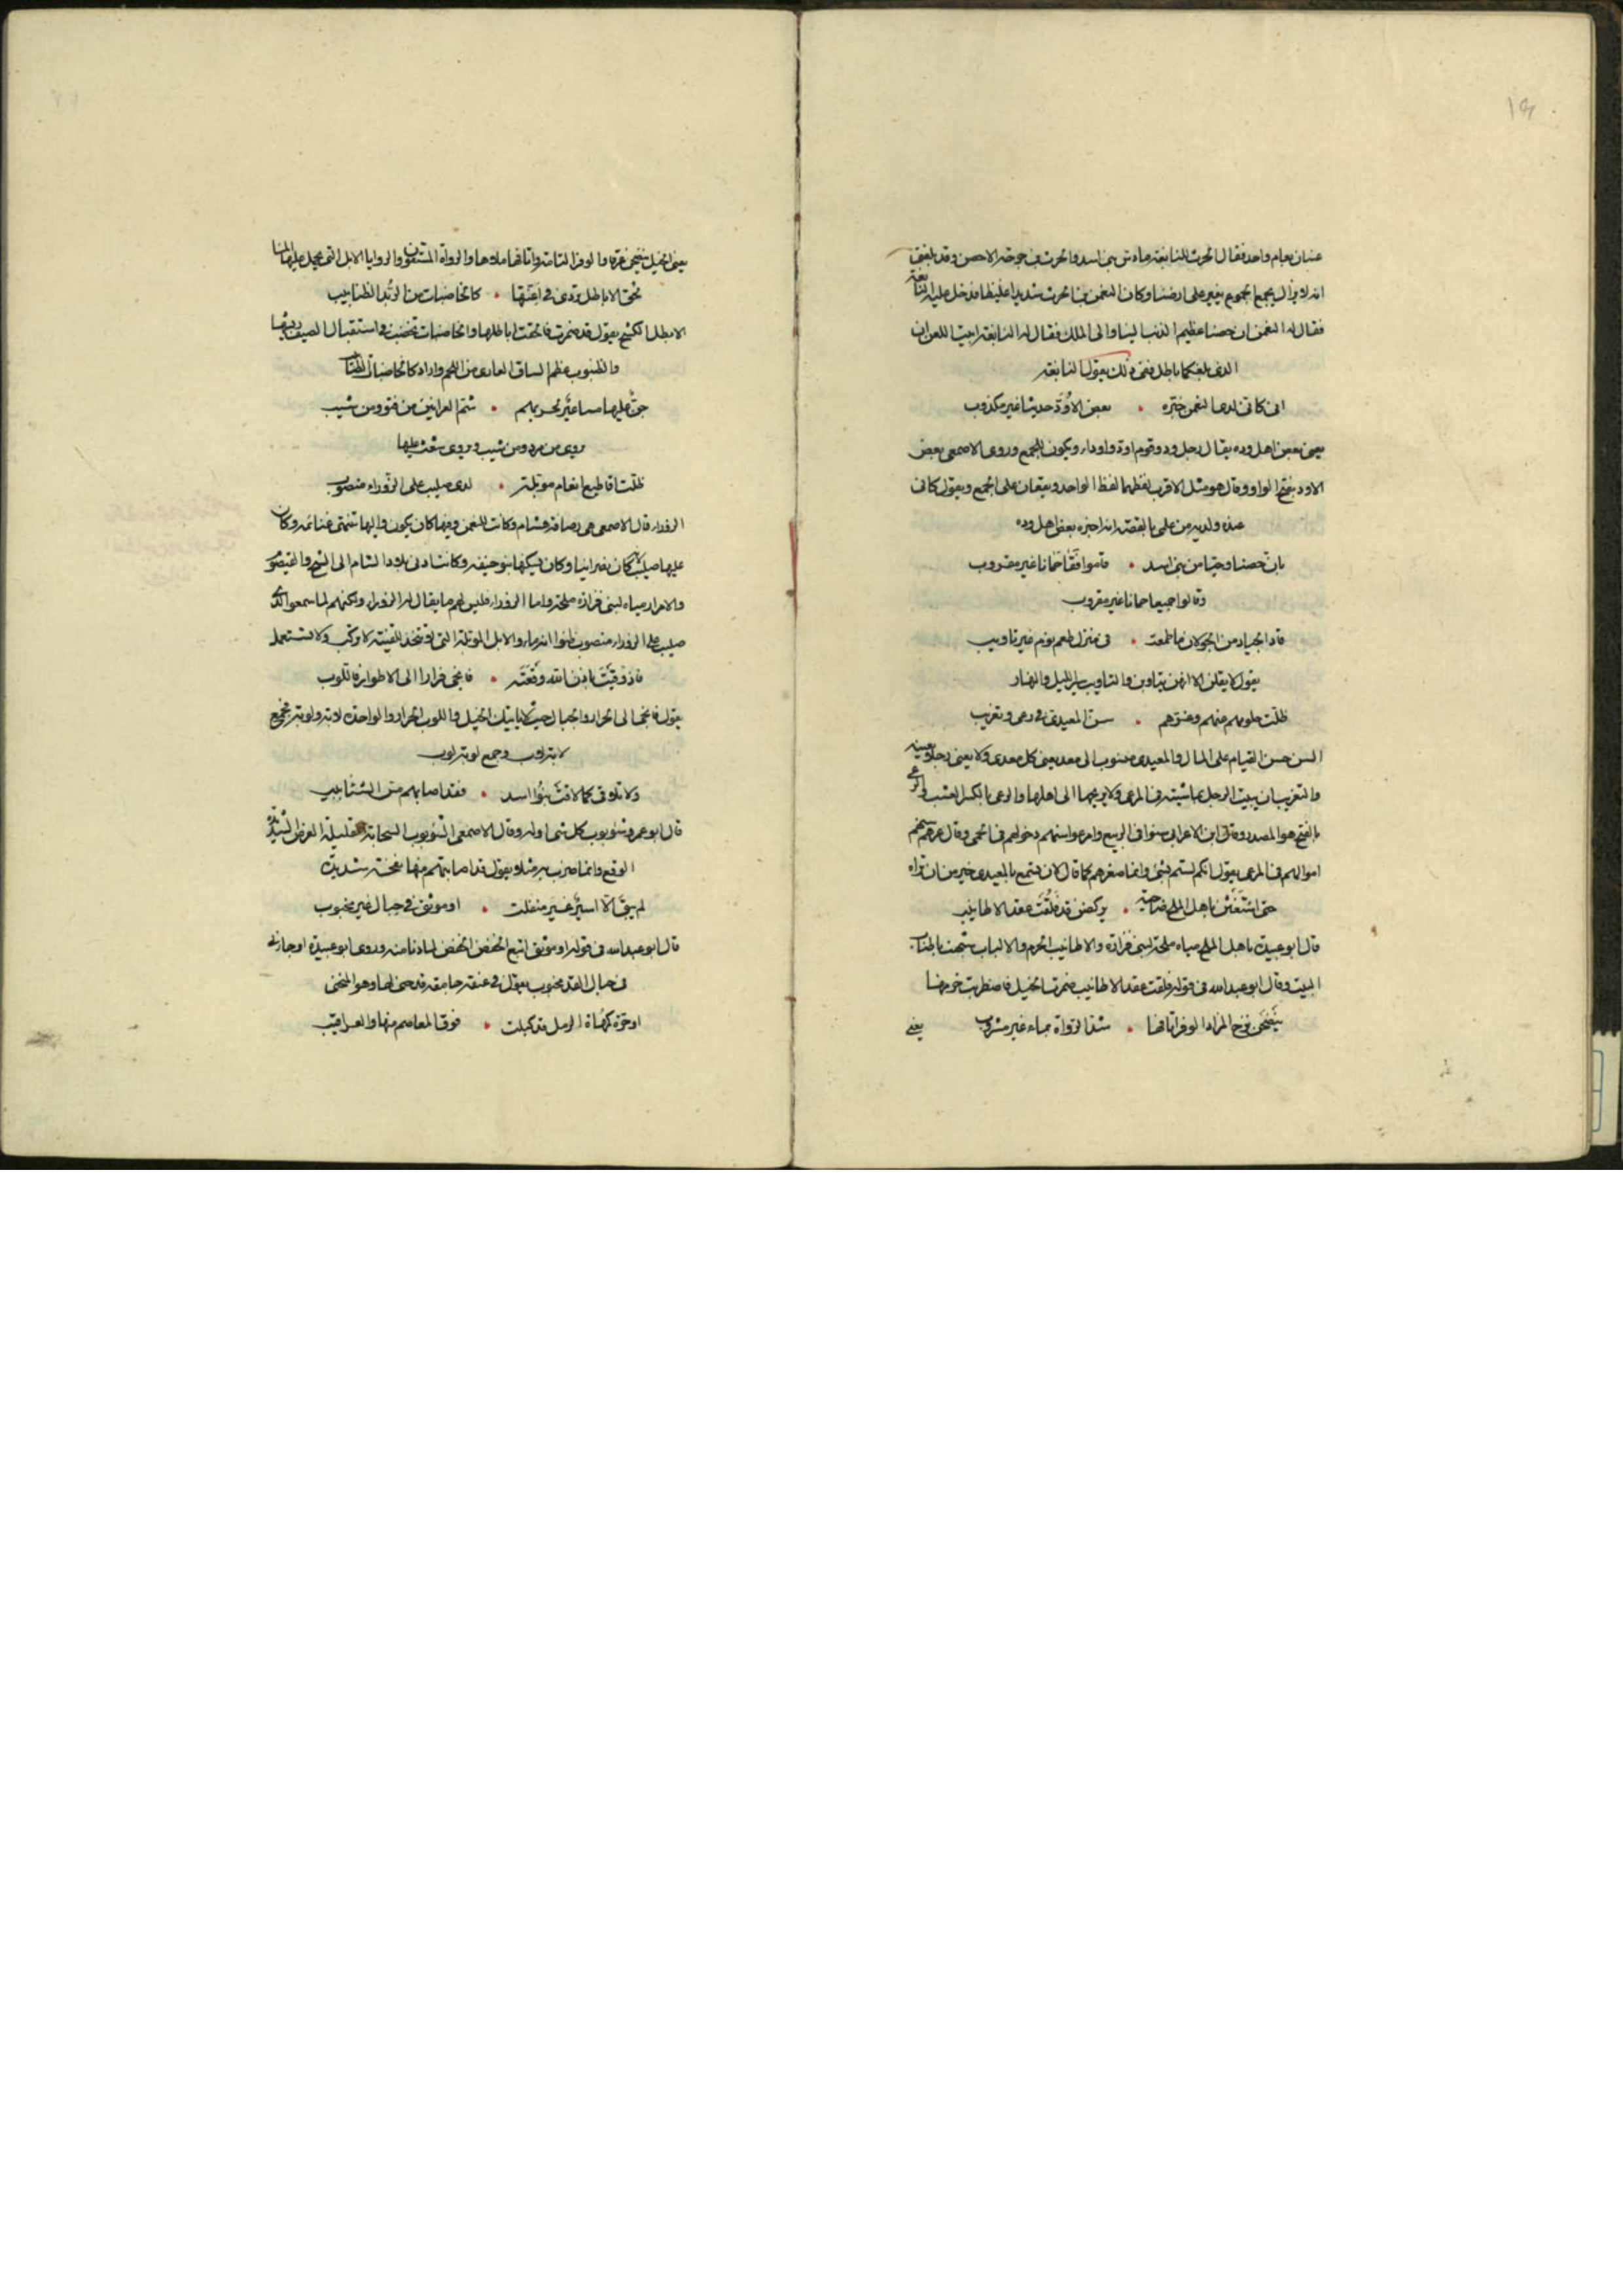 ١٩
غسان بعام واحد فقال الحرث للنابغة ما دش بنى اسد والحرث فى حوضه الاحصن وقد بلغنى
انه لا يزال يجمع الجموع ليغير على ارضنا وكان النعمن بن الحرث شديدا غليظا فدخل عليه النابغة
فقال له النعمن ان حصنا عظيم الذنب الينا والى الملك فقال له النابغة ابيت اللعن ان
الذى بلغك باطل ففى ذلك يقول النابغة
انى كانى لدى النعمن خبّره • بعض الاودّ حديثا غير مكذوب
يعنى بعض اهل وده يقال رجل ود وقوم اود واوداء ويكون للجمع وروى الاصمعى بعض
الاود بفتح الواو وقال هو مثل الاقرب لفظهما لفظ الواحد ويقعان على الجمع ويقول كانى
عنده ولديه من علمى بالقصة انه اخبره بعض اهل وده
بان حصنا وحيا من بنى اسد • قاموا فقالوا حمانا غير مقروب
وقالوا جميعا حمانا غير مقروب
قاد الجياد من الجولان قائظة • فى منزل طعم نوم غير تاويب
يقول لا يقلن الا انهن يتاوبن والتاويب سير الليل والنهار
ظلت حلومهم عنهم وغرهم • سن المعيدى فى رعى وتعزيب
السن حسن القيام على المال والمعيدى منسوب الى معد يعنى كل معدى ولا يعنى رجلا بعينه
والتعزيب ان يبيت الرجل بماشيته فى المرعى ولا يريحها الى اهلها والرعى بالكسر العشب والرعى
بالفتح هو المصدر وقال ابن الاعرابى سنوا فى الربيع وامرعوا سنهم دخولهم فى الحمى وقال غرهم سنهم
اموالهم فى المرعى يقول انكم لستم بشئ وانما صغرهم كما قال لان تسمع بالمعيدى خير من ان تراه
حتى استغثن باهل الملح ضاحية • يركضن قد قلقت عقد الاطانيب
قال ابو عبيدة باهل الملح مياه ملحة لبنى فزارة والاطانيب الحزم والالباب
البيت وقال ابو عبد الله فى قوله قلقت عقد الاطانيب ضمرت الخيل فاضطربت حزمها
ينضحن نضح المزاد الوفر اتاقها • شد الرواة بماء غير مشروب
يعنى
يعنى الخيل ينضحن عرقا والوفر التامة واتاقها ملاها والرواة المستقون والروايا الابل التى يحمل عليها الماء
قب الاياطل تردى فى اعنتها • كالخاضبات من الربد الظنابيب
الايطل الكشح يقول قد ضمرت فالحقت اياطلها والخاضبات تخضب فى استقبال الصيف ريشها
والظنبوب عظم الساق العارى من اللحم واراد كالخاضبات الظنابيب
جن عليها مساعير لحربهم • شم العرانين من مرد ومن شيب
يروى من مرد ومن شيب ويروى شعث عليها
ظلت اقاطيع انعام موبلة • لدى صليب على الزوراء منصوب
الزوراء قال الاصمعى هى رصافة هشام وكانت للنعمن وفيها كان يكون واليها تنتهى غنائمه وكان
عليها صليب لانه كان نصرانيا وكان يسكنها بنو حنيفة وكانت ادنى بلاد الشام الى الشيح والقيصوم
والامرار مياه لبنى فزارة ملحة واما الزوراء فليس لهم ما يقال له الزوراء ولكنهم لما سمعوا لدى
صليب على الزوراء منصوب ظنوا انه ماء والابل الموبلة التى تتخذ للقنية لا تركب ولا تستعمل
فاذ وقيت بحمد الله وقعته • فانجى فزار الى الاطواد فاللوب
يقول فانجى الى الحرار والجبال حيث لا ياتيك الخيل واللوب الحرار والواحدة لابة ولوبة يجمع
لابة لاب وجمع لوبة لوب
ولا تلاقى كما لاقت بنو اسد • فقد اصابهم من الشئابيب
قال ابو عمرو شؤبوب كل شئ اوله وقال الاصمعى الشؤبوب السحابة القليلة العرض الشديدة
الوقع وانما ضرب به مثلا ويقول قد اصابتهم منها نفحة شديدة
لم يبق الا اسير غير منفلت • او موثق فى حبال غير مجنوب
قال ابو عبد الله فى قوله او موثق اتبع الخفض الخفض لما دنا منه وروى ابو عبيدة
فى حبال القد مجنوب يقول فى عنقه جامعة
او حرة كمهاة الرمل قد كبلت • فوق المعاصم منها والعراقيب